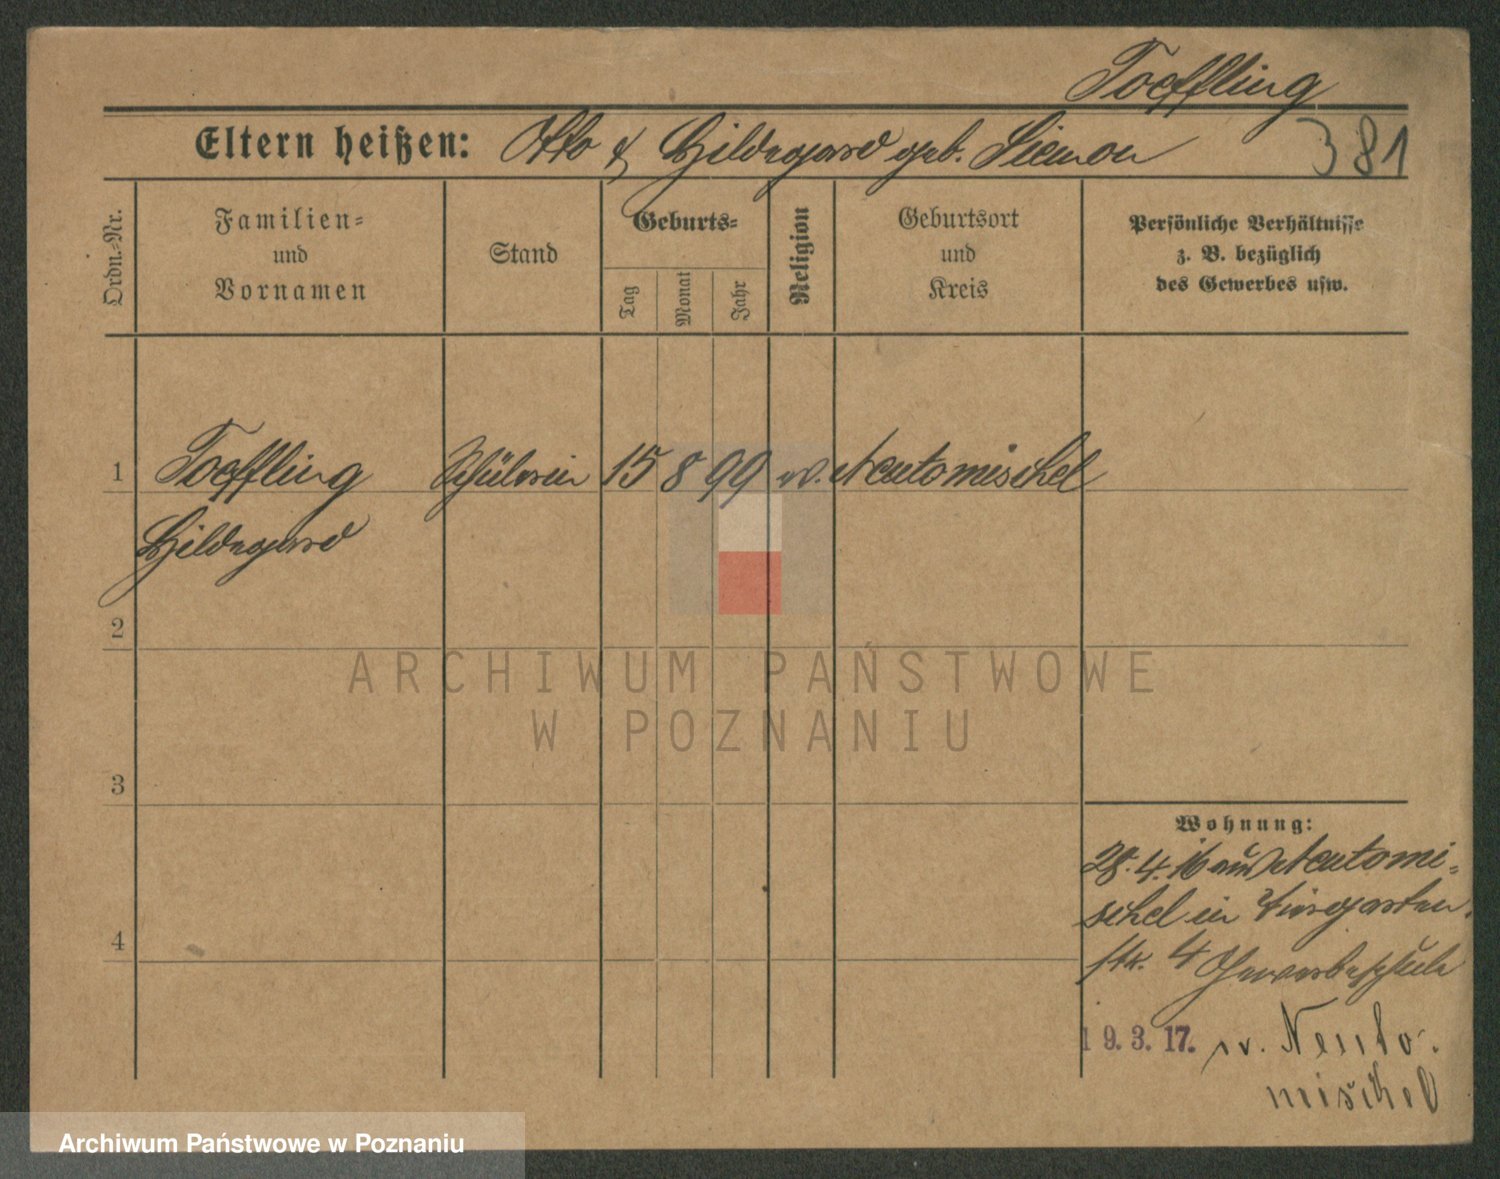 Toeffling
Eltern heißen: Otto & Hildegard geb. Siemon
381
Ordn.-Nr.
Familien-
und
Vornamen
Stand
Geburts-
Tag
Monat
Jahr
Religion
Geburtsort
und
Kreis
Persönliche Verhältnisse
z. B. bezüglich
des Gewerbes usw.
1 Toeffling Schülerin 15 8 99 ev. Neutomischel
Hildegard
2
ARCHIWUM PAŃSTWOWE
W POZNANIU
3
Wohnung:
28.4.16 aus Neutomi-
schel in Tiergarten
str. 4 Gewerbeschule
4
19.3.17. n. Neuto-
mischel
Archiwum Państwowe w Poznaniu